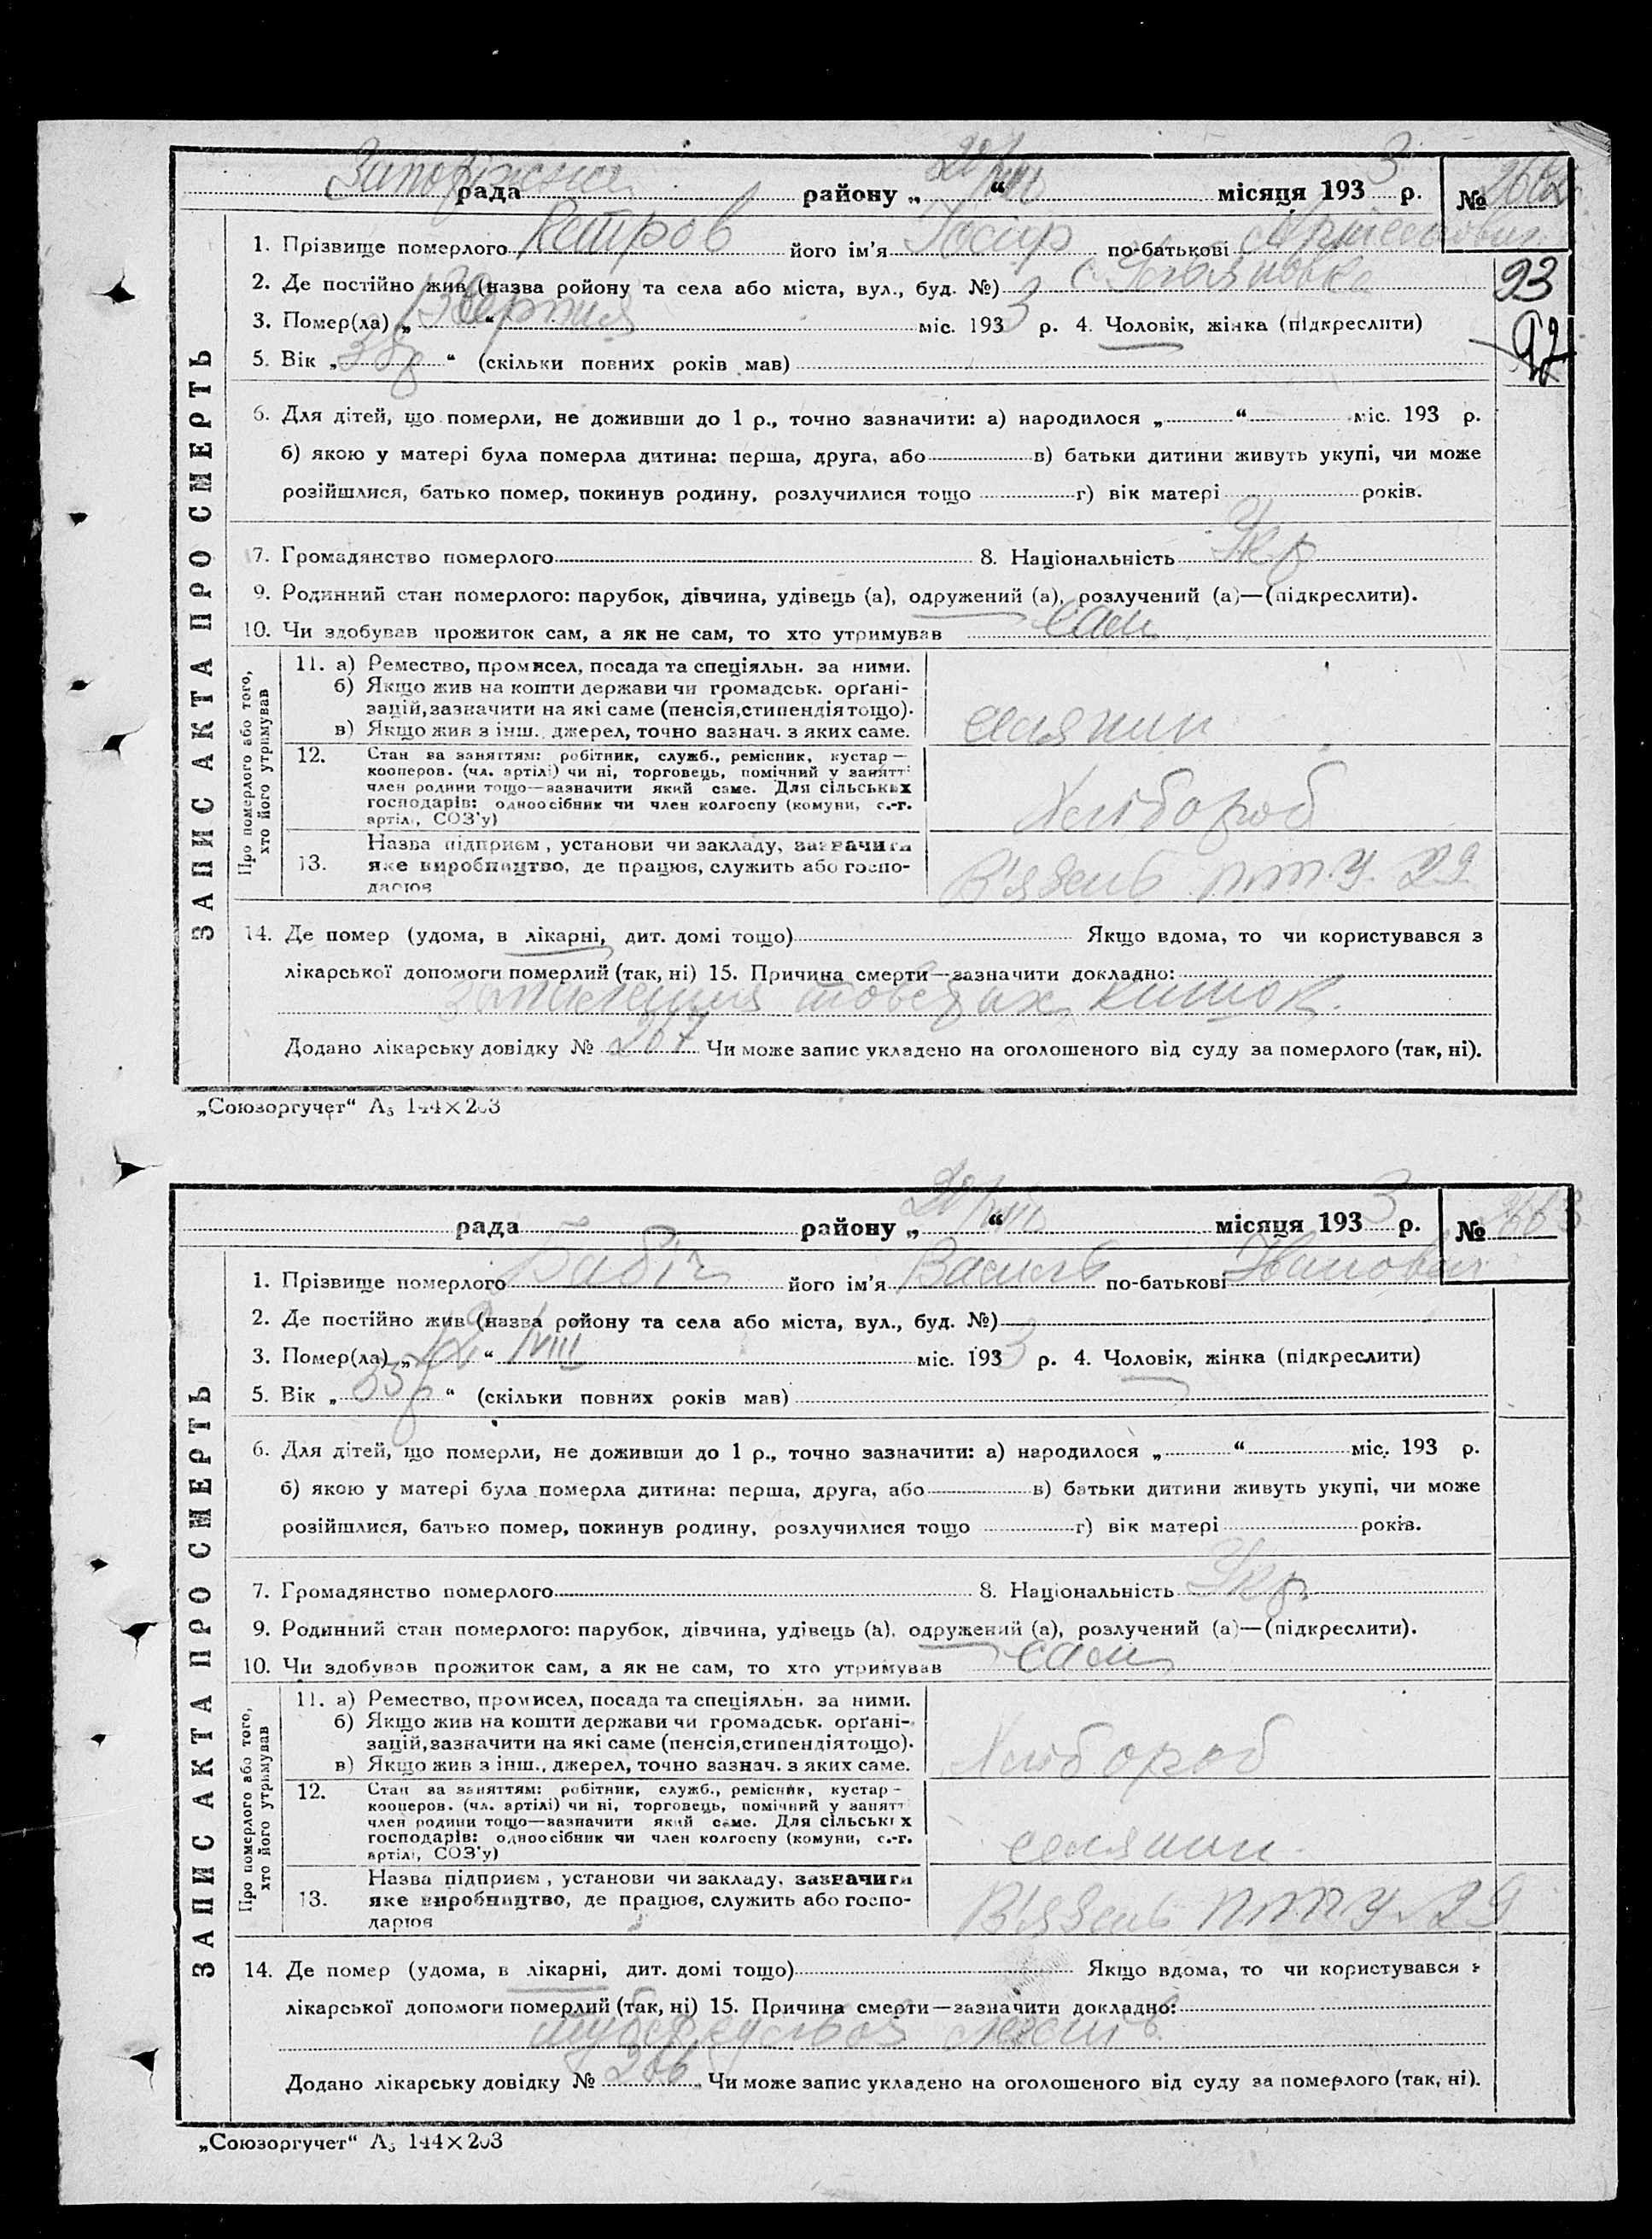 Запоріжська рада району „20/VIII“ місяця 1933 р. № 2662
1. Прізвище померлого Петров його ім'я по-батькові
2. Де постійно жив (назва ройону та села або міста, вул., буд. №) с.
93
3. Помер(ла) „ “ міс. 1933 р. 4. Чоловік, жінка (підкреслити)
92
5. Вік „38р“ (скільки повних років мав)
6. Для дітей, що померли, не доживши до 1 р., точно зазначити: а) народилося „ “ міс. 193 р.
б) якою у матері була померла дитина: перша, друга, або в) батьки дитини живуть укупі, чи може
розійшлися, батько помер, покинув родину, розлучилися тощо г) вік матері років.
7. Громадянство померлого 8. Національність Укр
9. Родинний стан померлого: парубок, дівчина, удівець (а), одружений (а), розлучений (а)—(підкреслити).
10. Чи здобував прожиток сам, а як не сам, то хто утримував сам
ЗАПИС АКТА ПРО СМЕРТЬ
Про померлого або того, хто його утримував
11. а) Ремество, промисел, посада та спеціяльн. за ними.
б) Якщо жив на кошти держави чи громадськ. орґані-
зацій, зазначити на які саме (пенсія, стипендія тощо).
в) Якщо жив з інш. джерел, точно зазнач. з яких саме.
селянин
12. Стан за заняттям: робітник, служб., ремісник, кустар—
кооперов. (чл. артілі) чи ні, торговець, помічний у занятті
член родини тощо—зазначити який саме. Для сільських
господарів: одноосібник чи член колгоспу (комуни, с.-г.
артілі, СОЗ'у)
Хлібороб
13. Назва підприєм., установи чи закладу, зазначити
яке виробництво, де працює, служить або госпо-
дарює
В'язень п.т.у. 29
14. Де помер (удома, в лікарні, дит. домі тощо) Якщо вдома, то чи користувався з
лікарської допомоги померлий (так, ні) 15. Причина смерти—зазначити докладно:
запалення кишок.
Додано лікарську довідку № 267 Чи може запис укладено на оголошеного від суду за померлого (так, ні).
„Союзоргучет“ А₅ 144×203
рада району „20/VIII“ місяця 1933 р. № 2663
1. Прізвище померлого Бабіч його ім'я Василь по-батькові
2. Де постійно жив (назва ройону та села або міста, вул., буд. №)
3. Помер(ла) „12“ VIII міс. 1933 р. 4. Чоловік, жінка (підкреслити)
5. Вік „35р“ (скільки повних років мав)
6. Для дітей, що померли, не доживши до 1 р., точно зазначити: а) народилося „ “ міс. 193 р.
б) якою у матері була померла дитина: перша, друга, або в) батьки дитини живуть укупі, чи може
розійшлися, батько помер, покинув родину, розлучилися тощо г) вік матері років.
7. Громадянство померлого 8. Національність Укр
9. Родинний стан померлого: парубок, дівчина, удівець (а), одружений (а), розлучений (а)—(підкреслити).
10. Чи здобував прожиток сам, а як не сам, то хто утримував сам
ЗАПИС АКТА ПРО СМЕРТЬ
Про померлого або того, хто його утримував
11. а) Ремество, промисел, посада та спеціяльн. за ними.
б) Якщо жив на кошти держави чи громадськ. орґані-
зацій, зазначити на які саме (пенсія, стипендія тощо).
в) Якщо жив з інш., джерел, точно зазнач. з яких саме.
Хлібороб
12. Стан за заняттям: робітник, служб., ремісник, кустар—
кооперов. (чл. артілі) чи ні, торговець, помічний у занятт
член родини тощо—зазначити який саме. Для сільських
господарів: одноосібник чи член колгоспу (комуни, с.-г.
артілі, СОЗ'у)
селянин
13. Назва підприєм., установи чи закладу, зазначити
яке виробництво, де працює, служить або госпо-
дарює
В'язень п.т.у. 29
14. Де помер (удома, в лікарні, дит. домі тощо) Якщо вдома, то чи користувався з
лікарської допомоги померлий (так, ні) 15. Причина смерти—зазначити докладно:
туберкульоз легень
Додано лікарську довідку № 266 Чи може запис укладено на оголошеного від суду за померлого (так, ні).
„Союзоргучет“ А₅ 144×203